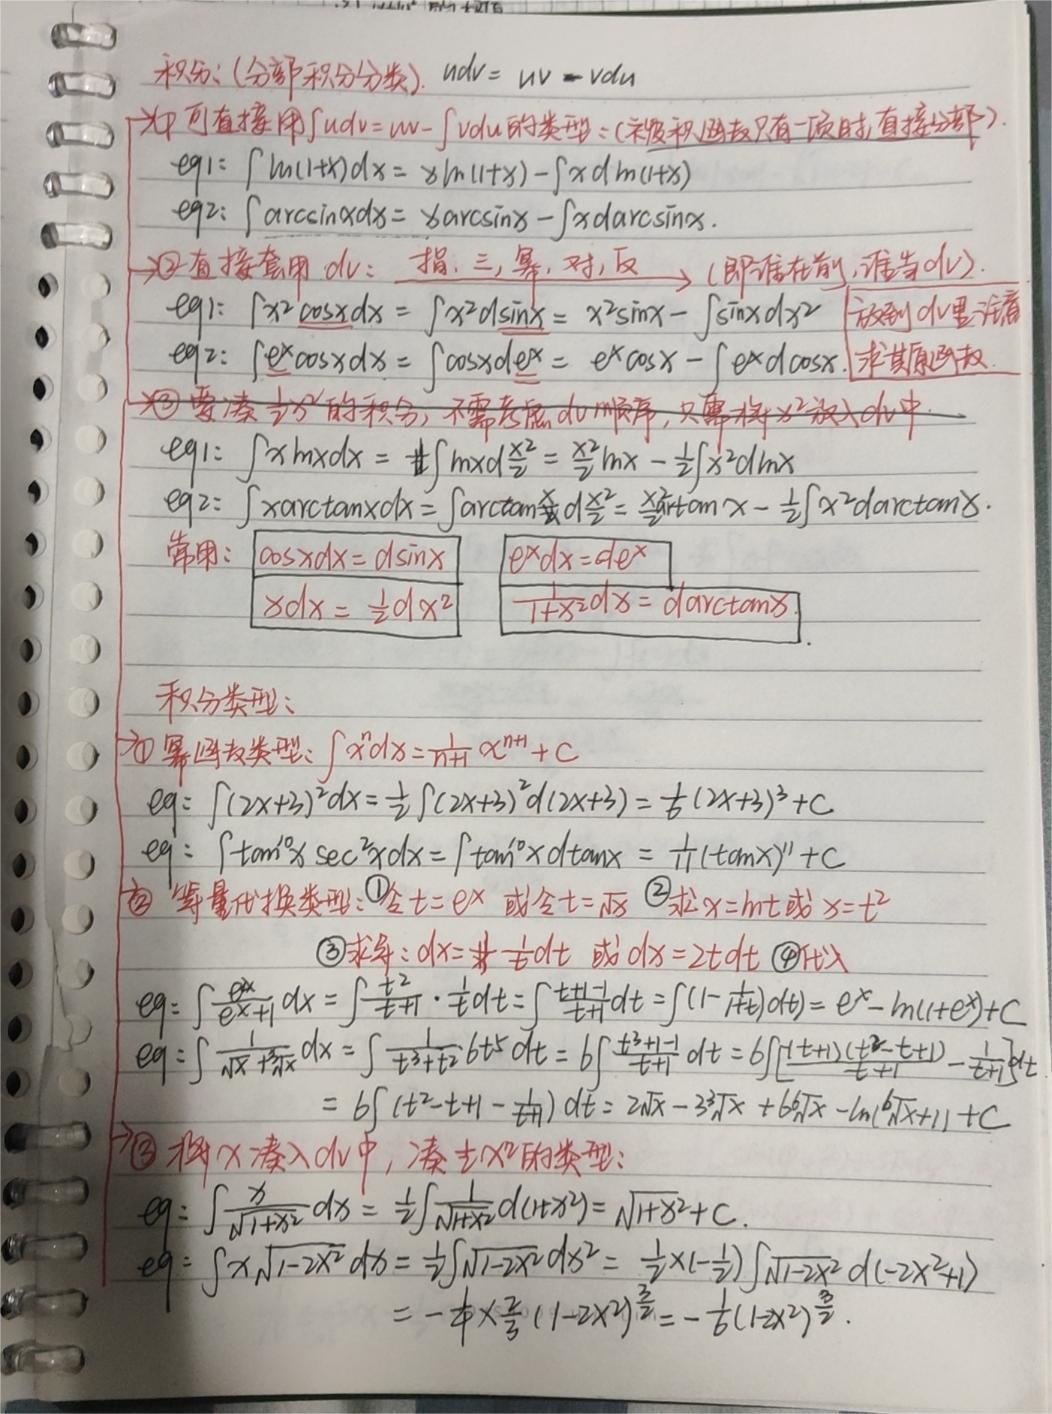 积分:(分部积分分类). udv = uv - vdu
① 可直接用∫udv=uv-∫vdu的类型:(未被积函数只有一项时,直接分部).
eg1: ∫ln(1+x)dx = xln(1+x) - ∫xdln(1+x)
eg2: ∫arcsinxdx = xarcsinx - ∫xdarcsinx.
② 直接套用 dv: 指、三、幂、对、反 → (即谁在前,谁当dv).
eg1: ∫x²cosxdx = ∫x²dsinx = x²sinx - ∫sinxdx² 放到dv里注意
eg2: ∫eˣcosxdx = ∫cosxdeˣ = eˣcosx - ∫eˣdcosx. 求其原函数.
③ 要凑½x²的积分,不需考虑dv顺序,只需将x²放入dv中.
eg1: ∫xlnxdx = ∫lnxd x²/2 = x²/2 lnx - ½∫x²dlnx
eg2: ∫xarctanxdx = ∫arctanx d x²/2 = x²/2 arctanx - ½∫x²darctanx.
常用: cosxdx = dsinx eˣdx = deˣ
xdx = ½dx² 1/(1+x²) dx = darctanx.
积分类型:
① 幂函数类型: ∫xⁿdx = 1/(n+1) xⁿ⁺¹ + C
eg: ∫(2x+3)²dx = ½∫(2x+3)²d(2x+3) = 1/6 (2x+3)³ + C
eg: ∫tan¹⁰x sec²xdx = ∫tan¹⁰xdtanx = 1/11 (tanx)¹¹ + C
② 等量代换类型: ①令t=eˣ 或令t=√x ②求x=lnt或x=t²
③求导: dx = 1/t dt 或 dx = 2tdt ④代入
eg: ∫eˣ/(eˣ+1) dx = ∫t²/(t+1) · 1/t dt = ∫(t+1-1)/(t+1) dt = ∫(1 - 1/(1+t))dt) = eˣ - ln(1+eˣ) + C
eg: ∫1/(√x+³√x) dx = ∫1/(t³+t²) 6t⁵ dt = 6∫(t³+1-1)/(t+1) dt = 6∫[(t+1)(t²-t+1)/(t+1) - 1/(t+1)]dt
= 6∫(t²-t+1 - 1/(t+1)) dt = 2√x - 3³√x + 6⁶√x - ln(⁶√x+1) + C
③ 将x凑入dv中,凑½x²的类型:
eg: ∫x/√(1+x²) dx = ½∫1/√(1+x²) d(1+x²) = √(1+x²) + C.
eg: ∫x√(1-2x²) dx = ½∫√(1-2x²) dx² = ½×(-½)∫√(1-2x²) d(-2x²+1)
= -¼×⅔(1-2x²)^(3/2) = -1/6(1-2x²)^(3/2).